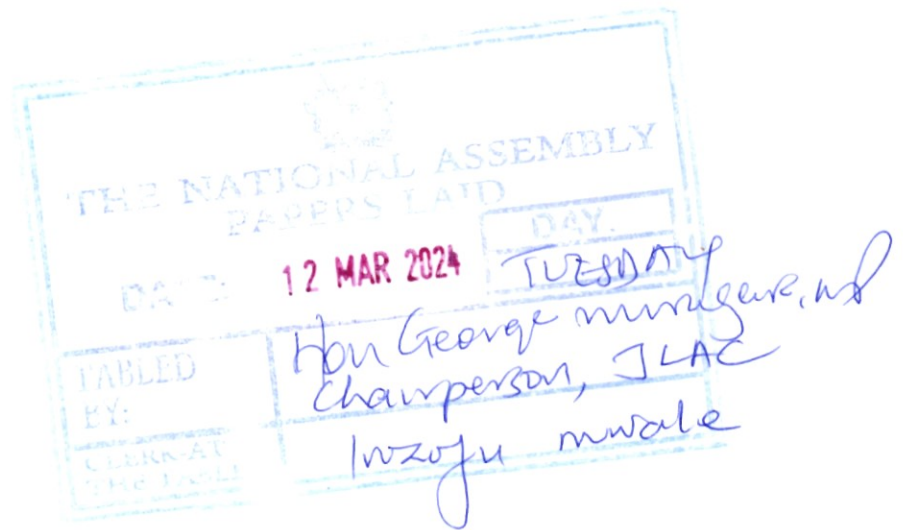 THE NATIONAL ASSEMBLY
PAPERS LAID
DATE: 12 MAR 2024
DAY.
TUESDAY
TABLED BY:
Hon George Murugara, MP
Chairperson, JLAC
CLERK-AT THE TABLE
Inzofu Mwale